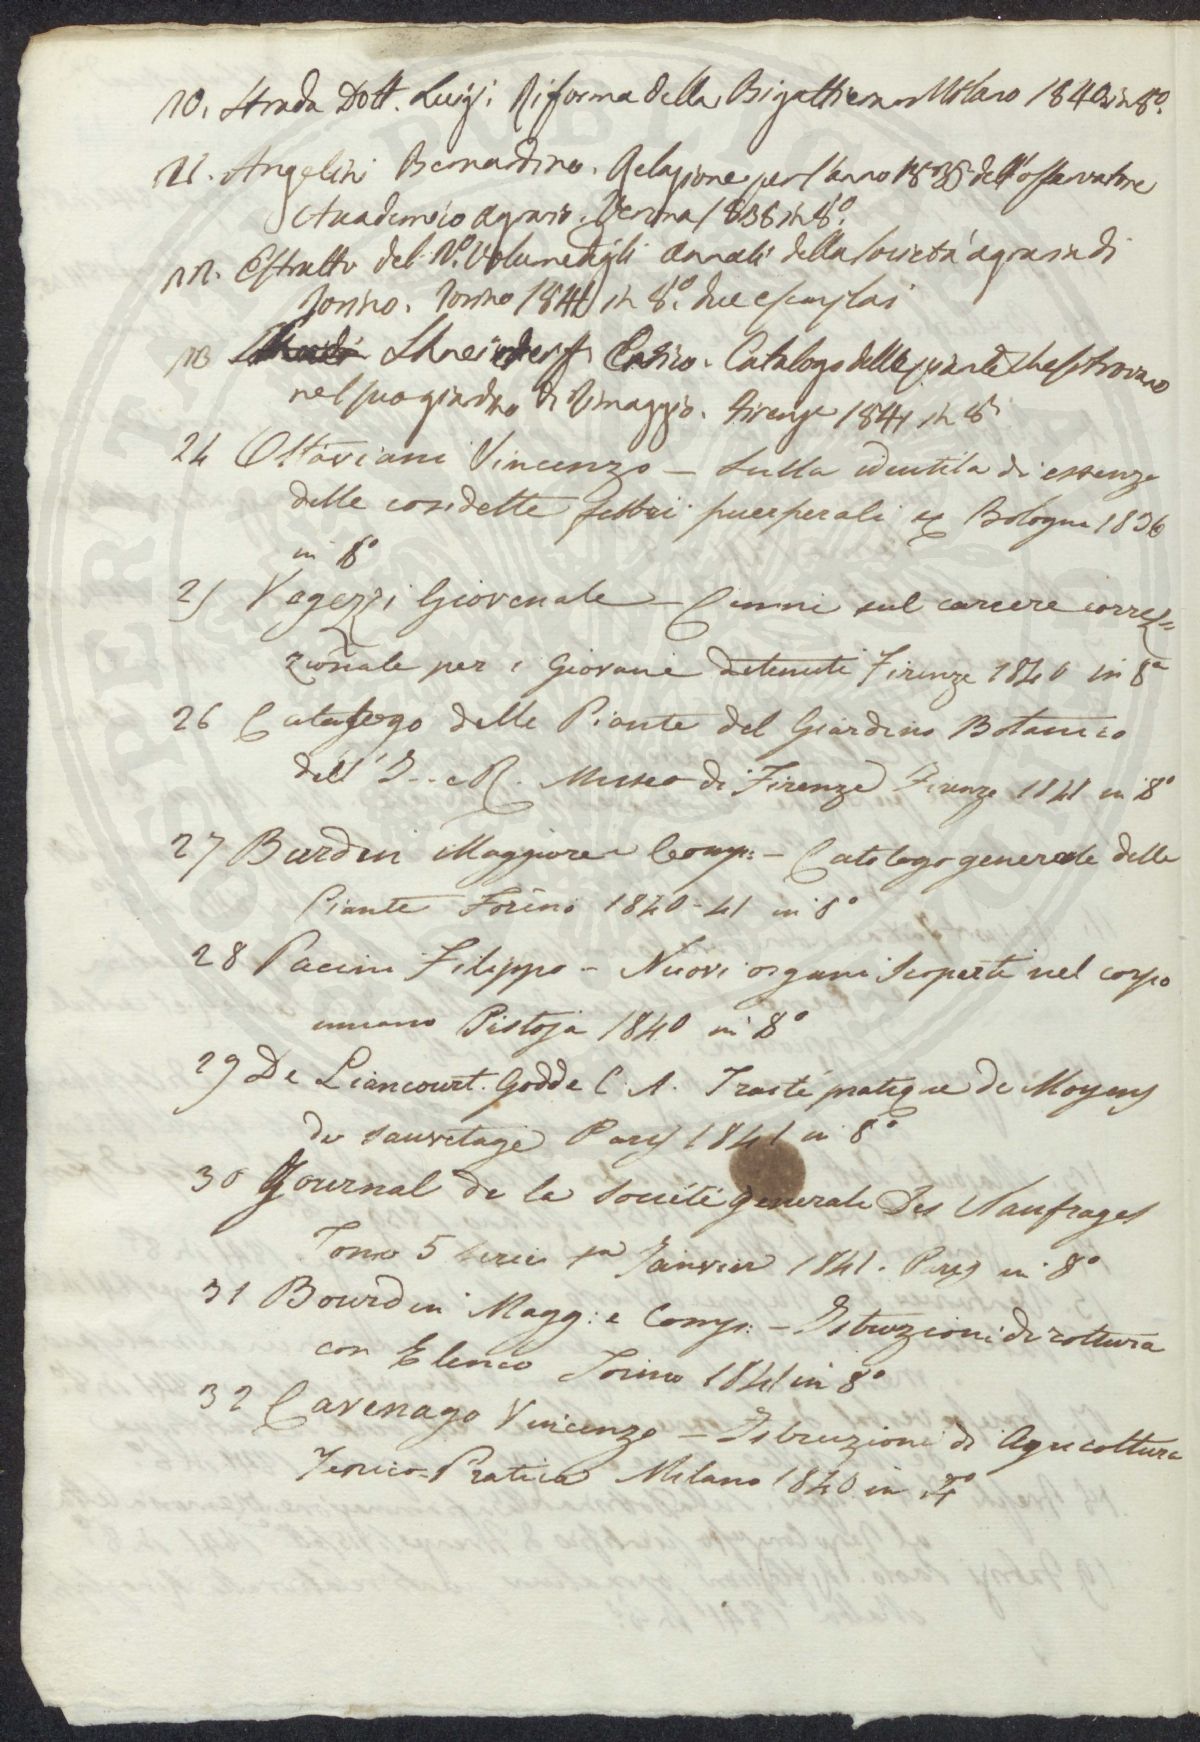 20. Strada Dott. Luigi. Riforma della Bigattiera Milano 1840 in 8º.
21. Angelini Bernardino. Relazione per l'anno 1835 dell'osservatore
Accademico agrario. Verona 1838 in 8º.
22. Estratto del Vº. Volume degli Annali della Società agraria di
Torino. Torino 1841 in 8º. due esemplari
23 Schneiderff Enrico. Catalogo delle piante che si trovano
nel suo giardino di Rimaggio. Firenze 1841 in 8º
24 Ottaviani Vincenzo – Sulla identità di essenza
delle cosidette febbri puerperali Bologna 1836
in 8º
25 Vegezzi Giovenale – Cenni sul carcere correz=
zionale per i Giovani detenuti Firenze 1840 in 8º
26 Catalogo delle Piante del Giardino Botanico
dell' I. e R. Museo di Firenze Firenze 1841 in 8º
27 Burdin Maggiore e Comp: – Catalogo generale delle
Piante Torino 1840-41 in 8º
28 Pacini Filippo – Nuovi organi scoperti nel corpo
umano Pistoja 1840 in 8º
29 De Liancourt. Godde C. A. Traité pratique de Moyens
de sauvetage Paris 1841 in 8º
30 Journal de la Société generale des Naufrages
Tomo 5 serie 1ª Janvier 1841. Paris in 8º
31 Bourdin Magg: e Comp: – Istruzioni di coltura
con Elenco Torino 1841 in 8º
32 Cavenago Vincenzo – Istruzioni di Agricoltura
Teorico-Pratica Milano 1840 in 4º